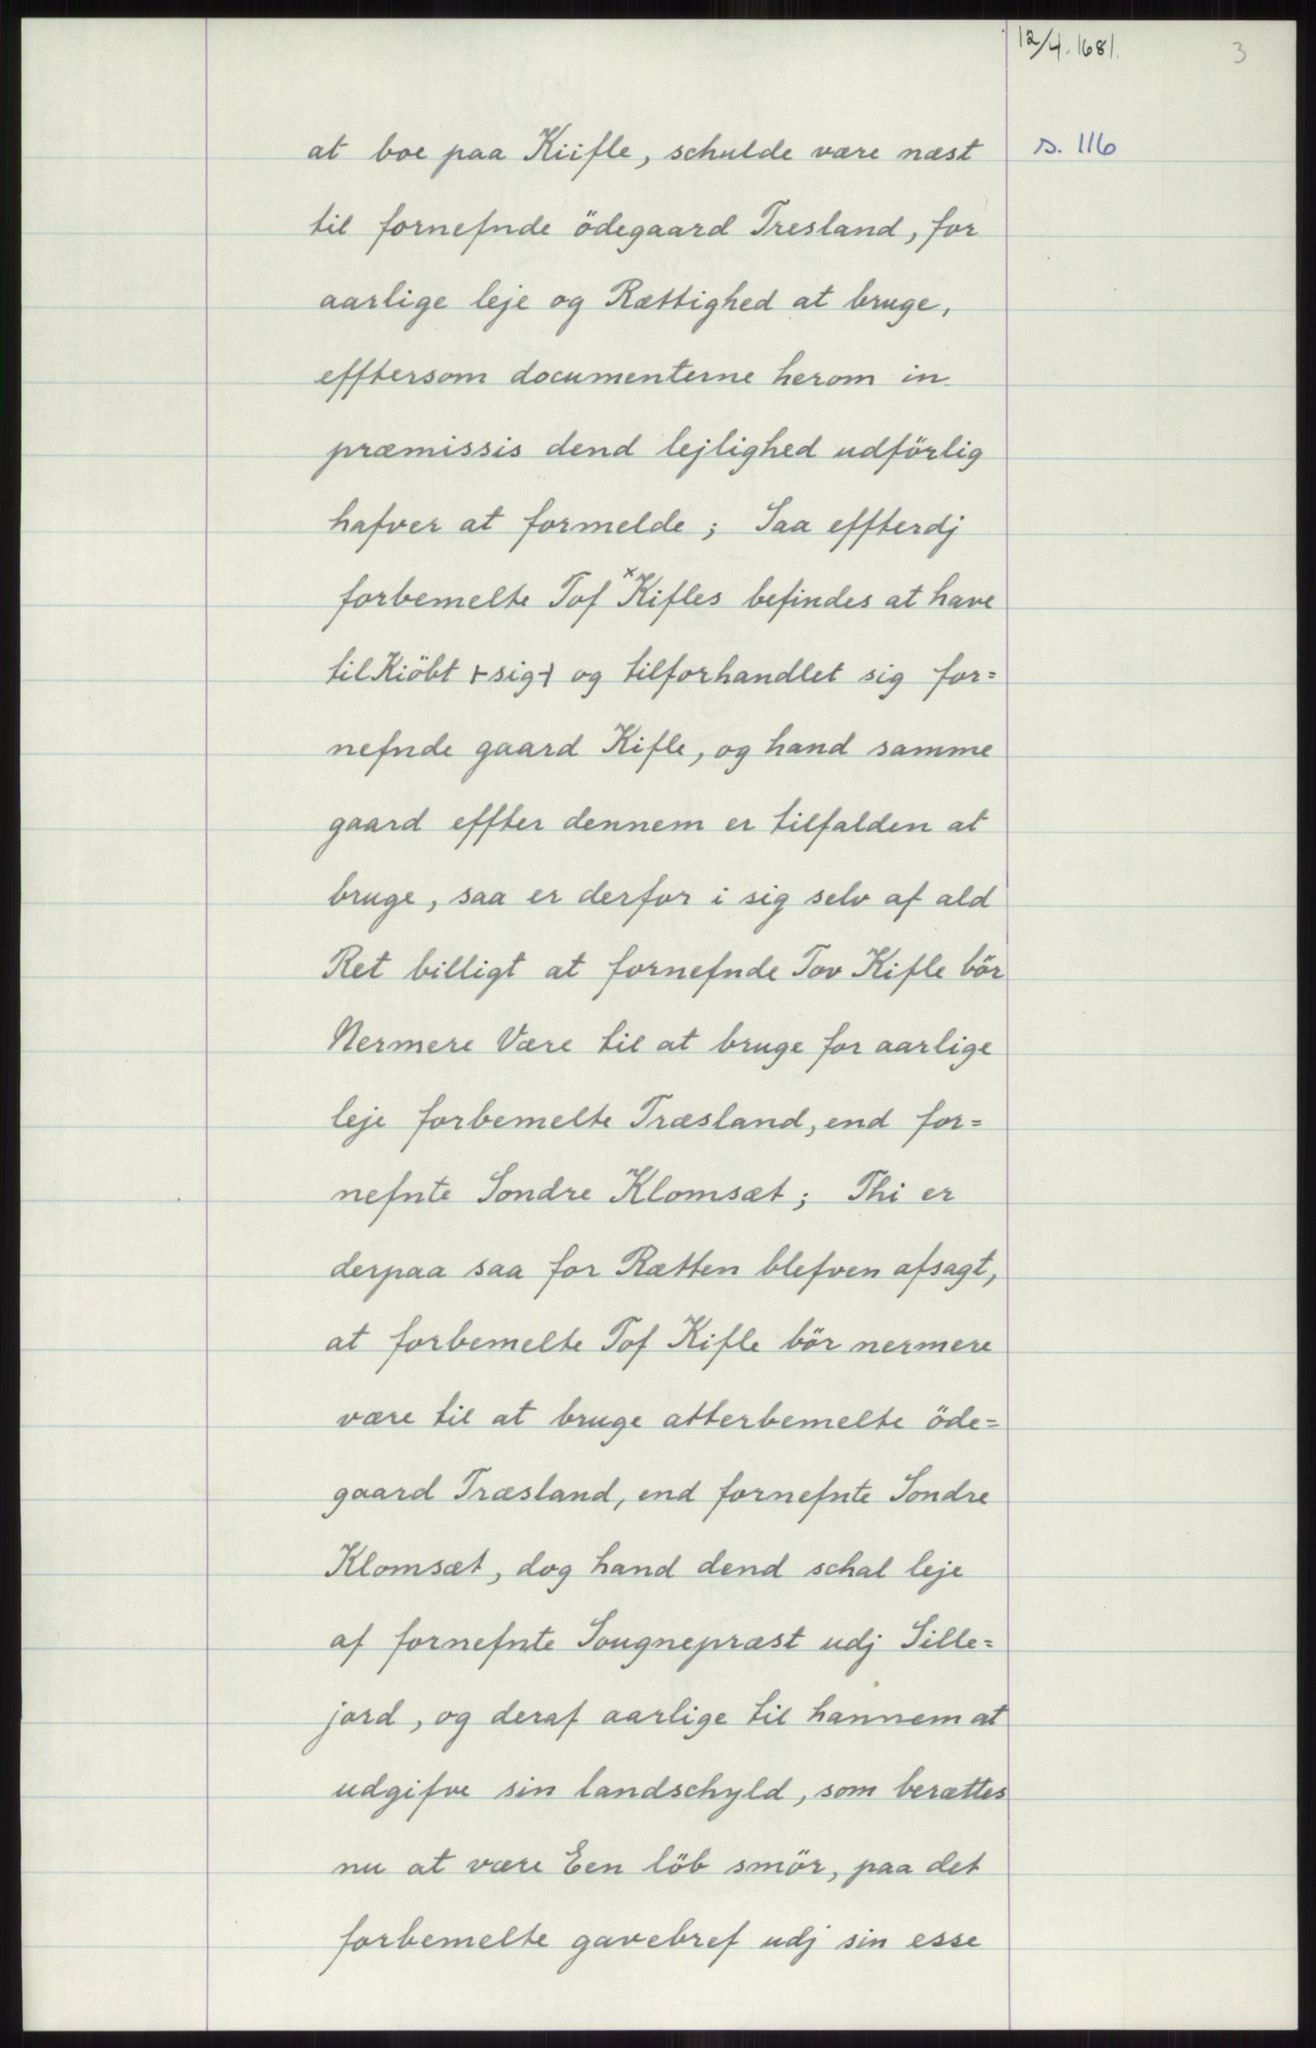 12/4.1681.
3
s. 116
at boe paa Kiifle, schulde være næst
til fornefnde ödegaard Tresland, for
aarlige leje og Rættighed at bruge,
efftersom documenterne herom in
præmissis dend lejlighed udförlig
hafver at formelde; Saa effterdj
forbemelte Tof ˣKifles befindes at have
tilKiöbt +sig+ og tilforhandlet sig for=
nefnde gaard Kifle, og hand samme
gaard effter dennem er tilfalden at
bruge, saa er derfor i sig selv af ald
Ret billigt at fornefnde Tov Kifle bör
Nermere Være til at bruge for aarlige
leje forbemelte Træsland, end for=
nefnte Sondre Klomsæt; Thi er
derpaa saa for Rætten blefven afsagt,
at forbemelte Tof Kifle bör nermere
være til at bruge atterbemelte öde=
gaard Træsland, end fornefnte Sondre
Klomsæt, dog hand dend schal leje
af fornefnte Sougnepræst udj Sille=
jord, og deraf aarlige til hannem at
udgifve sin landschyld, som berættes
nu at være Een löb smör, paa det
forbemelte gavebref udj sin esse